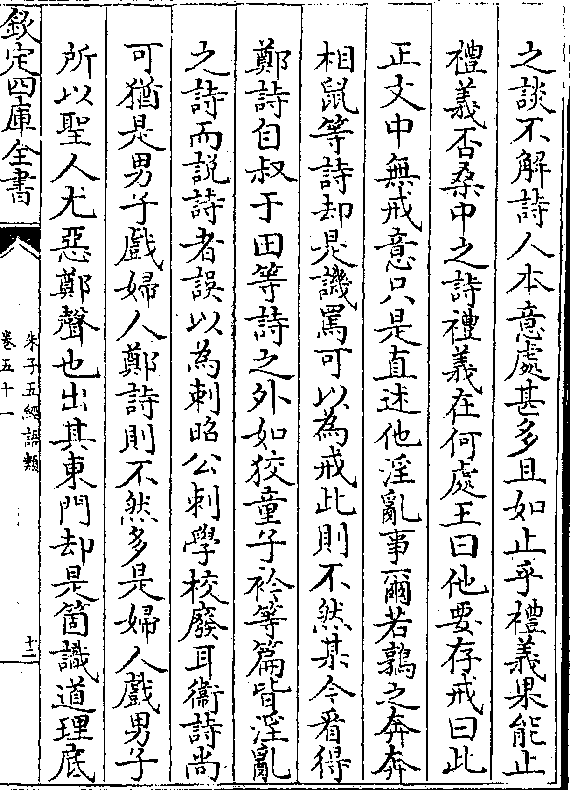 之談不解詩人本意處甚多且如止乎禮義果能止
禮義否桑中之詩禮義在何處王曰他要存戒曰此
正文中無戒意只是直述他淫亂事爾若鶉之奔奔
相鼠等詩却是譏罵可以為戒此則不然某今看得
鄭詩自叔于田等詩之外如狡童子衿等篇皆淫亂
之詩而説詩者誤以為刺昭公刺學校廢耳衞詩尚
可猶是男子戲婦人鄭詩則不然多是婦人戲男子
所以聖人尤惡鄭聲也出其東門却是箇識道理底
欽定四庫全書
朱子五經語類
卷五十一
十二